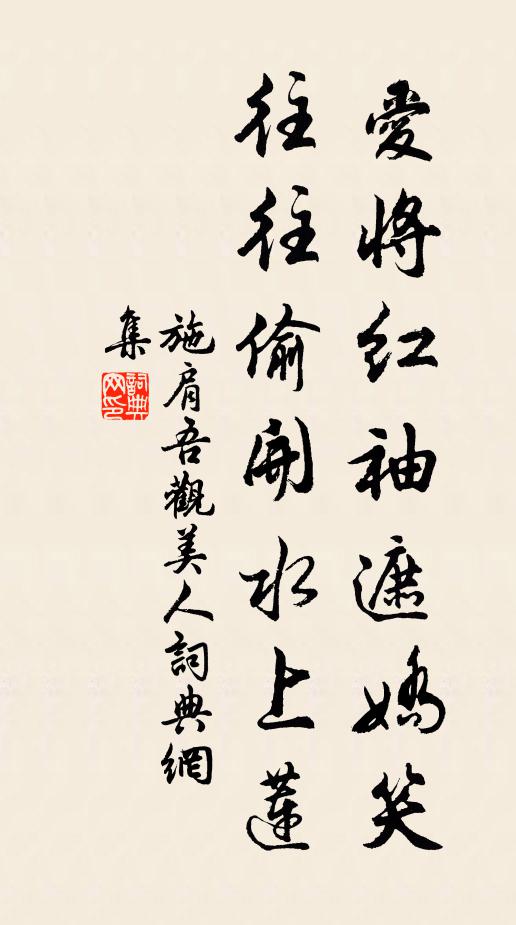 愛將紅袖遮嬌笑
往往偷開水上蓮
施肩吾觀美人詞典網
集
詞典網印